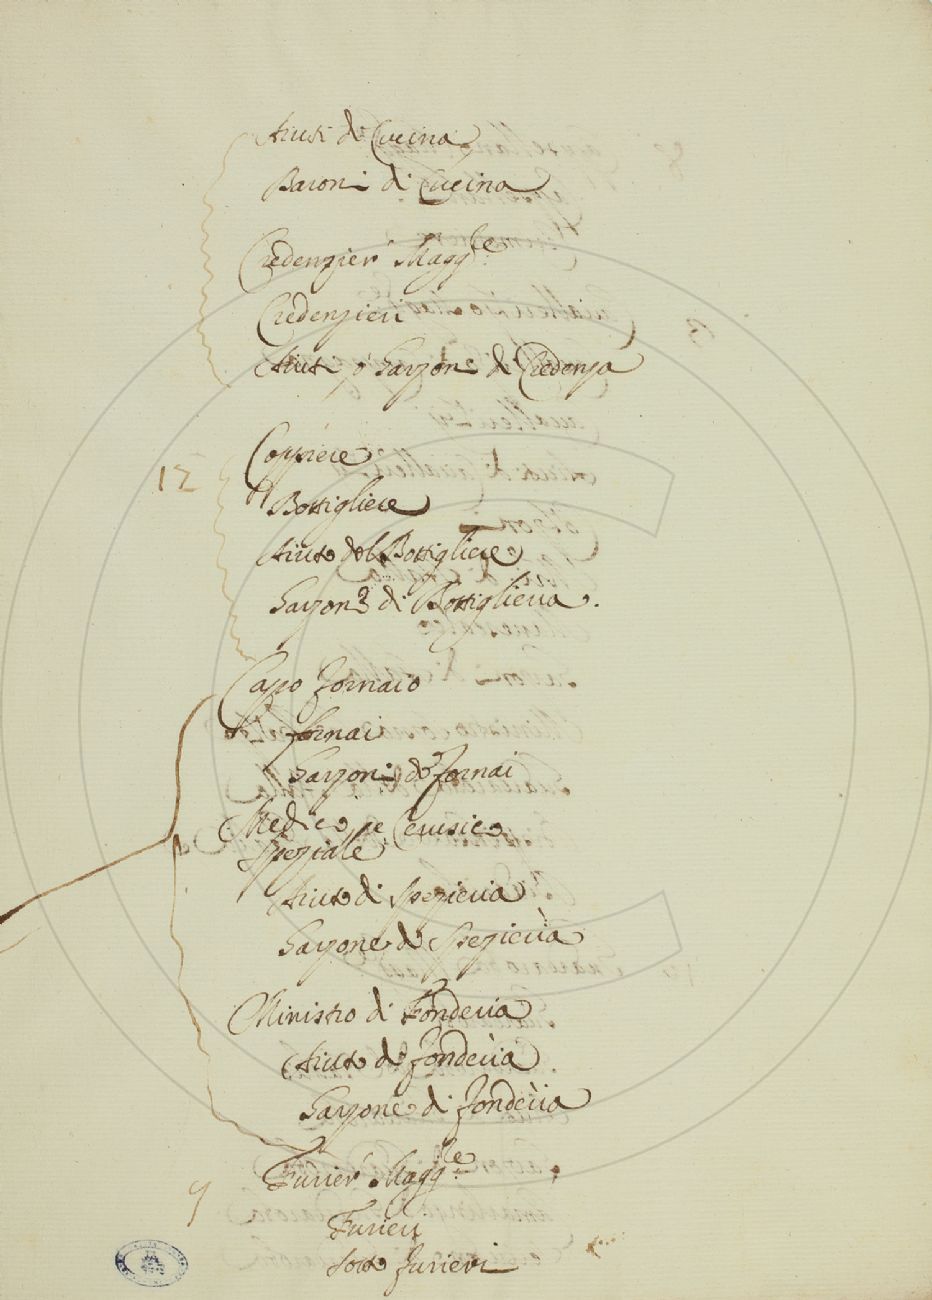 Aiuti di Cucina
Baroni di Cucina
Credenzier' Magg:re
Credenzieri
Aiuti o' Garzoni di Credenza
Coppiere
12
Bottigliere
Aiuto del Bottigliere
Garzone di Bottiglieria.
Capo fornaio
fornai
Garzoni de' fornai
Medico, e Cerusico
Speziale
Aiuto di spezieria
Garzone di spezieria
Ministro di Fonderia
Aiuto di fonderia
Garzone di fonderia
Furier' Magg:re
9
Furieri
Sotto furieri